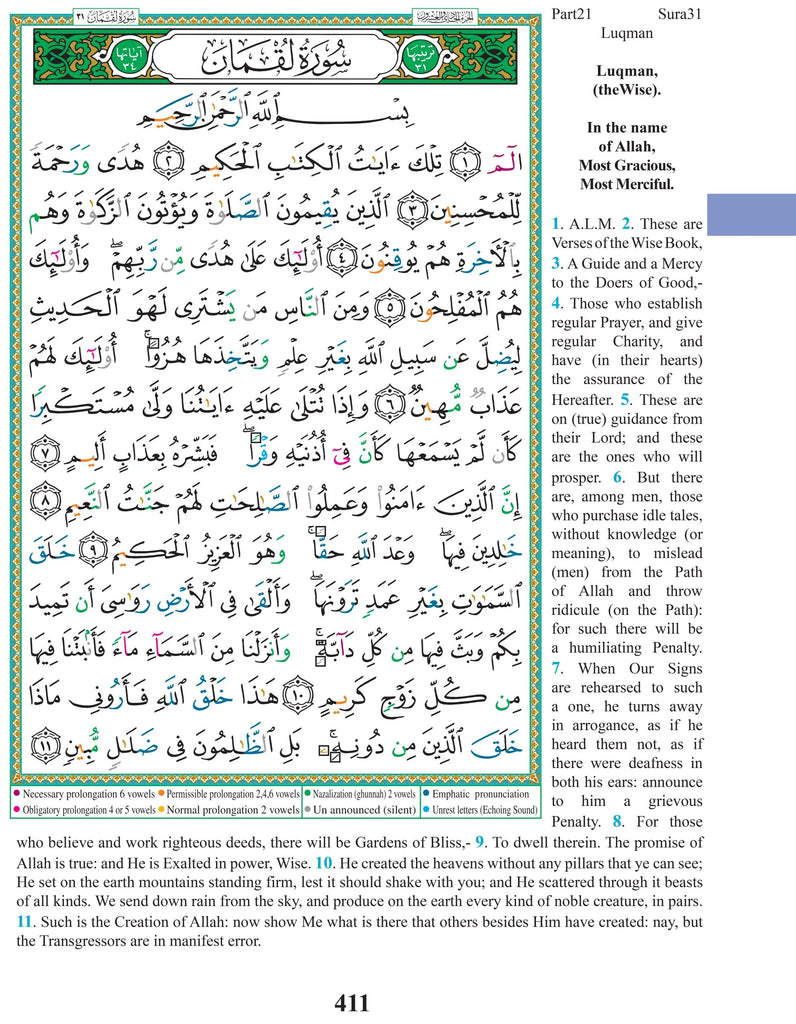 سُورَةُ لُقْمَان ٣١
الجزء الحادي والعشرون
آياتها ٣٤
سُورَةُ لُقْمَانَ
ترتيبها ٣١
بِسْمِ ٱللَّهِ ٱلرَّحْمَٰنِ ٱلرَّحِيمِ
الٓمٓ ١ تِلْكَ ءَايَٰتُ ٱلْكِتَٰبِ ٱلْحَكِيمِ ٢ هُدًى وَرَحْمَةً
لِّلْمُحْسِنِينَ ٣ ٱلَّذِينَ يُقِيمُونَ ٱلصَّلَوٰةَ وَيُؤْتُونَ ٱلزَّكَوٰةَ وَهُم
بِٱلْأَخِرَةِ هُمْ يُوقِنُونَ ٤ أُو۟لَٰٓئِكَ عَلَىٰ هُدًى مِّن رَّبِّهِمْ ۖ وَأُو۟لَٰٓئِكَ
هُمُ ٱلْمُفْلِحُونَ ٥ وَمِنَ ٱلنَّاسِ مَن يَشْتَرِى لَهْوَ ٱلْحَدِيثِ
لِيُضِلَّ عَن سَبِيلِ ٱللَّهِ بِغَيْرِ عِلْمٍ وَيَتَّخِذَهَا هُزُوًا ۚ أُو۟لَٰٓئِكَ لَهُمْ
عَذَابٌ مُّهِينٌ ٦ وَإِذَا تُتْلَىٰ عَلَيْهِ ءَايَٰتُنَا وَلَّىٰ مُسْتَكْبِرًا
كَأَن لَّمْ يَسْمَعْهَا كَأَنَّ فِىٓ أُذُنَيْهِ وَقْرًا ۖ فَبَشِّرْهُ بِعَذَابٍ أَلِيمٍ ٧
إِنَّ ٱلَّذِينَ ءَامَنُوا۟ وَعَمِلُوا۟ ٱلصَّٰلِحَٰتِ لَهُمْ جَنَّٰتُ ٱلنَّعِيمِ ٨
خَٰلِدِينَ فِيهَا ۖ وَعْدَ ٱللَّهِ حَقًّا ۚ وَهُوَ ٱلْعَزِيزُ ٱلْحَكِيمُ ٩ خَلَقَ
ٱلسَّمَٰوَٰتِ بِغَيْرِ عَمَدٍ تَرَوْنَهَا ۖ وَأَلْقَىٰ فِى ٱلْأَرْضِ رَوَٰسِىَ أَن تَمِيدَ
بِكُمْ وَبَثَّ فِيهَا مِن كُلِّ دَآبَّةٍ ۚ وَأَنزَلْنَا مِنَ ٱلسَّمَآءِ مَآءً فَأَنۢبَتْنَا فِيهَا
مِن كُلِّ زَوْجٍ كَرِيمٍ ١٠ هَٰذَا خَلْقُ ٱللَّهِ فَأَرُونِى مَاذَا
خَلَقَ ٱلَّذِينَ مِن دُونِهِۦ ۚ بَلِ ٱلظَّٰلِمُونَ فِى ضَلَٰلٍ مُّبِينٍ ١١
Necessary prolongation 6 vowels Permissible prolongation 2,4,6 vowels Nazalization (ghunnah) 2 vowels Emphatic pronunciation
Obligatory prolongation 4 or 5 vowels Normal prolongation 2 vowels Un announced (silent) Unrest letters (Echoing Sound)
Part21 Sura31
Luqman
Luqman,
(theWise).
In the name
of Allah,
Most Gracious,
Most Merciful.
1. A.L.M. 2. These are
Verses of the Wise Book,
3. A Guide and a Mercy
to the Doers of Good,-
4. Those who establish
regular Prayer, and give
regular Charity, and
have (in their hearts)
the assurance of the
Hereafter. 5. These are
on (true) guidance from
their Lord; and these
are the ones who will
prosper. 6. But there
are, among men, those
who purchase idle tales,
without knowledge (or
meaning), to mislead
(men) from the Path
of Allah and throw
ridicule (on the Path):
for such there will be
a humiliating Penalty.
7. When Our Signs
are rehearsed to such
a one, he turns away
in arrogance, as if he
heard them not, as if
there were deafness in
both his ears: announce
to him a grievous
Penalty. 8. For those
who believe and work righteous deeds, there will be Gardens of Bliss,- 9. To dwell therein. The promise of
Allah is true: and He is Exalted in power, Wise. 10. He created the heavens without any pillars that ye can see;
He set on the earth mountains standing firm, lest it should shake with you; and He scattered through it beasts
of all kinds. We send down rain from the sky, and produce on the earth every kind of noble creature, in pairs.
11. Such is the Creation of Allah: now show Me what is there that others besides Him have created: nay, but
the Transgressors are in manifest error.
411